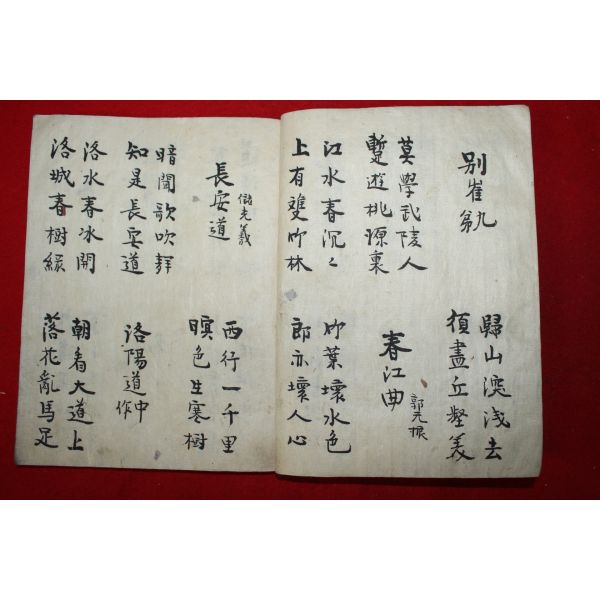 別崔九
歸山深淺去
須盡丘壑美
莫學武陵人
暫遊桃源裏
春江曲
郭元振
江水春沉々
上有雙竹林
竹葉壞水色
郎亦壞人心
長安道
儲光羲
西行一千里
暝色生寒樹
暗聞歌吹聲
知是長安道
洛陽道中作
洛水春冰開
洛城春樹綠
朝看大道上
落花亂馬足